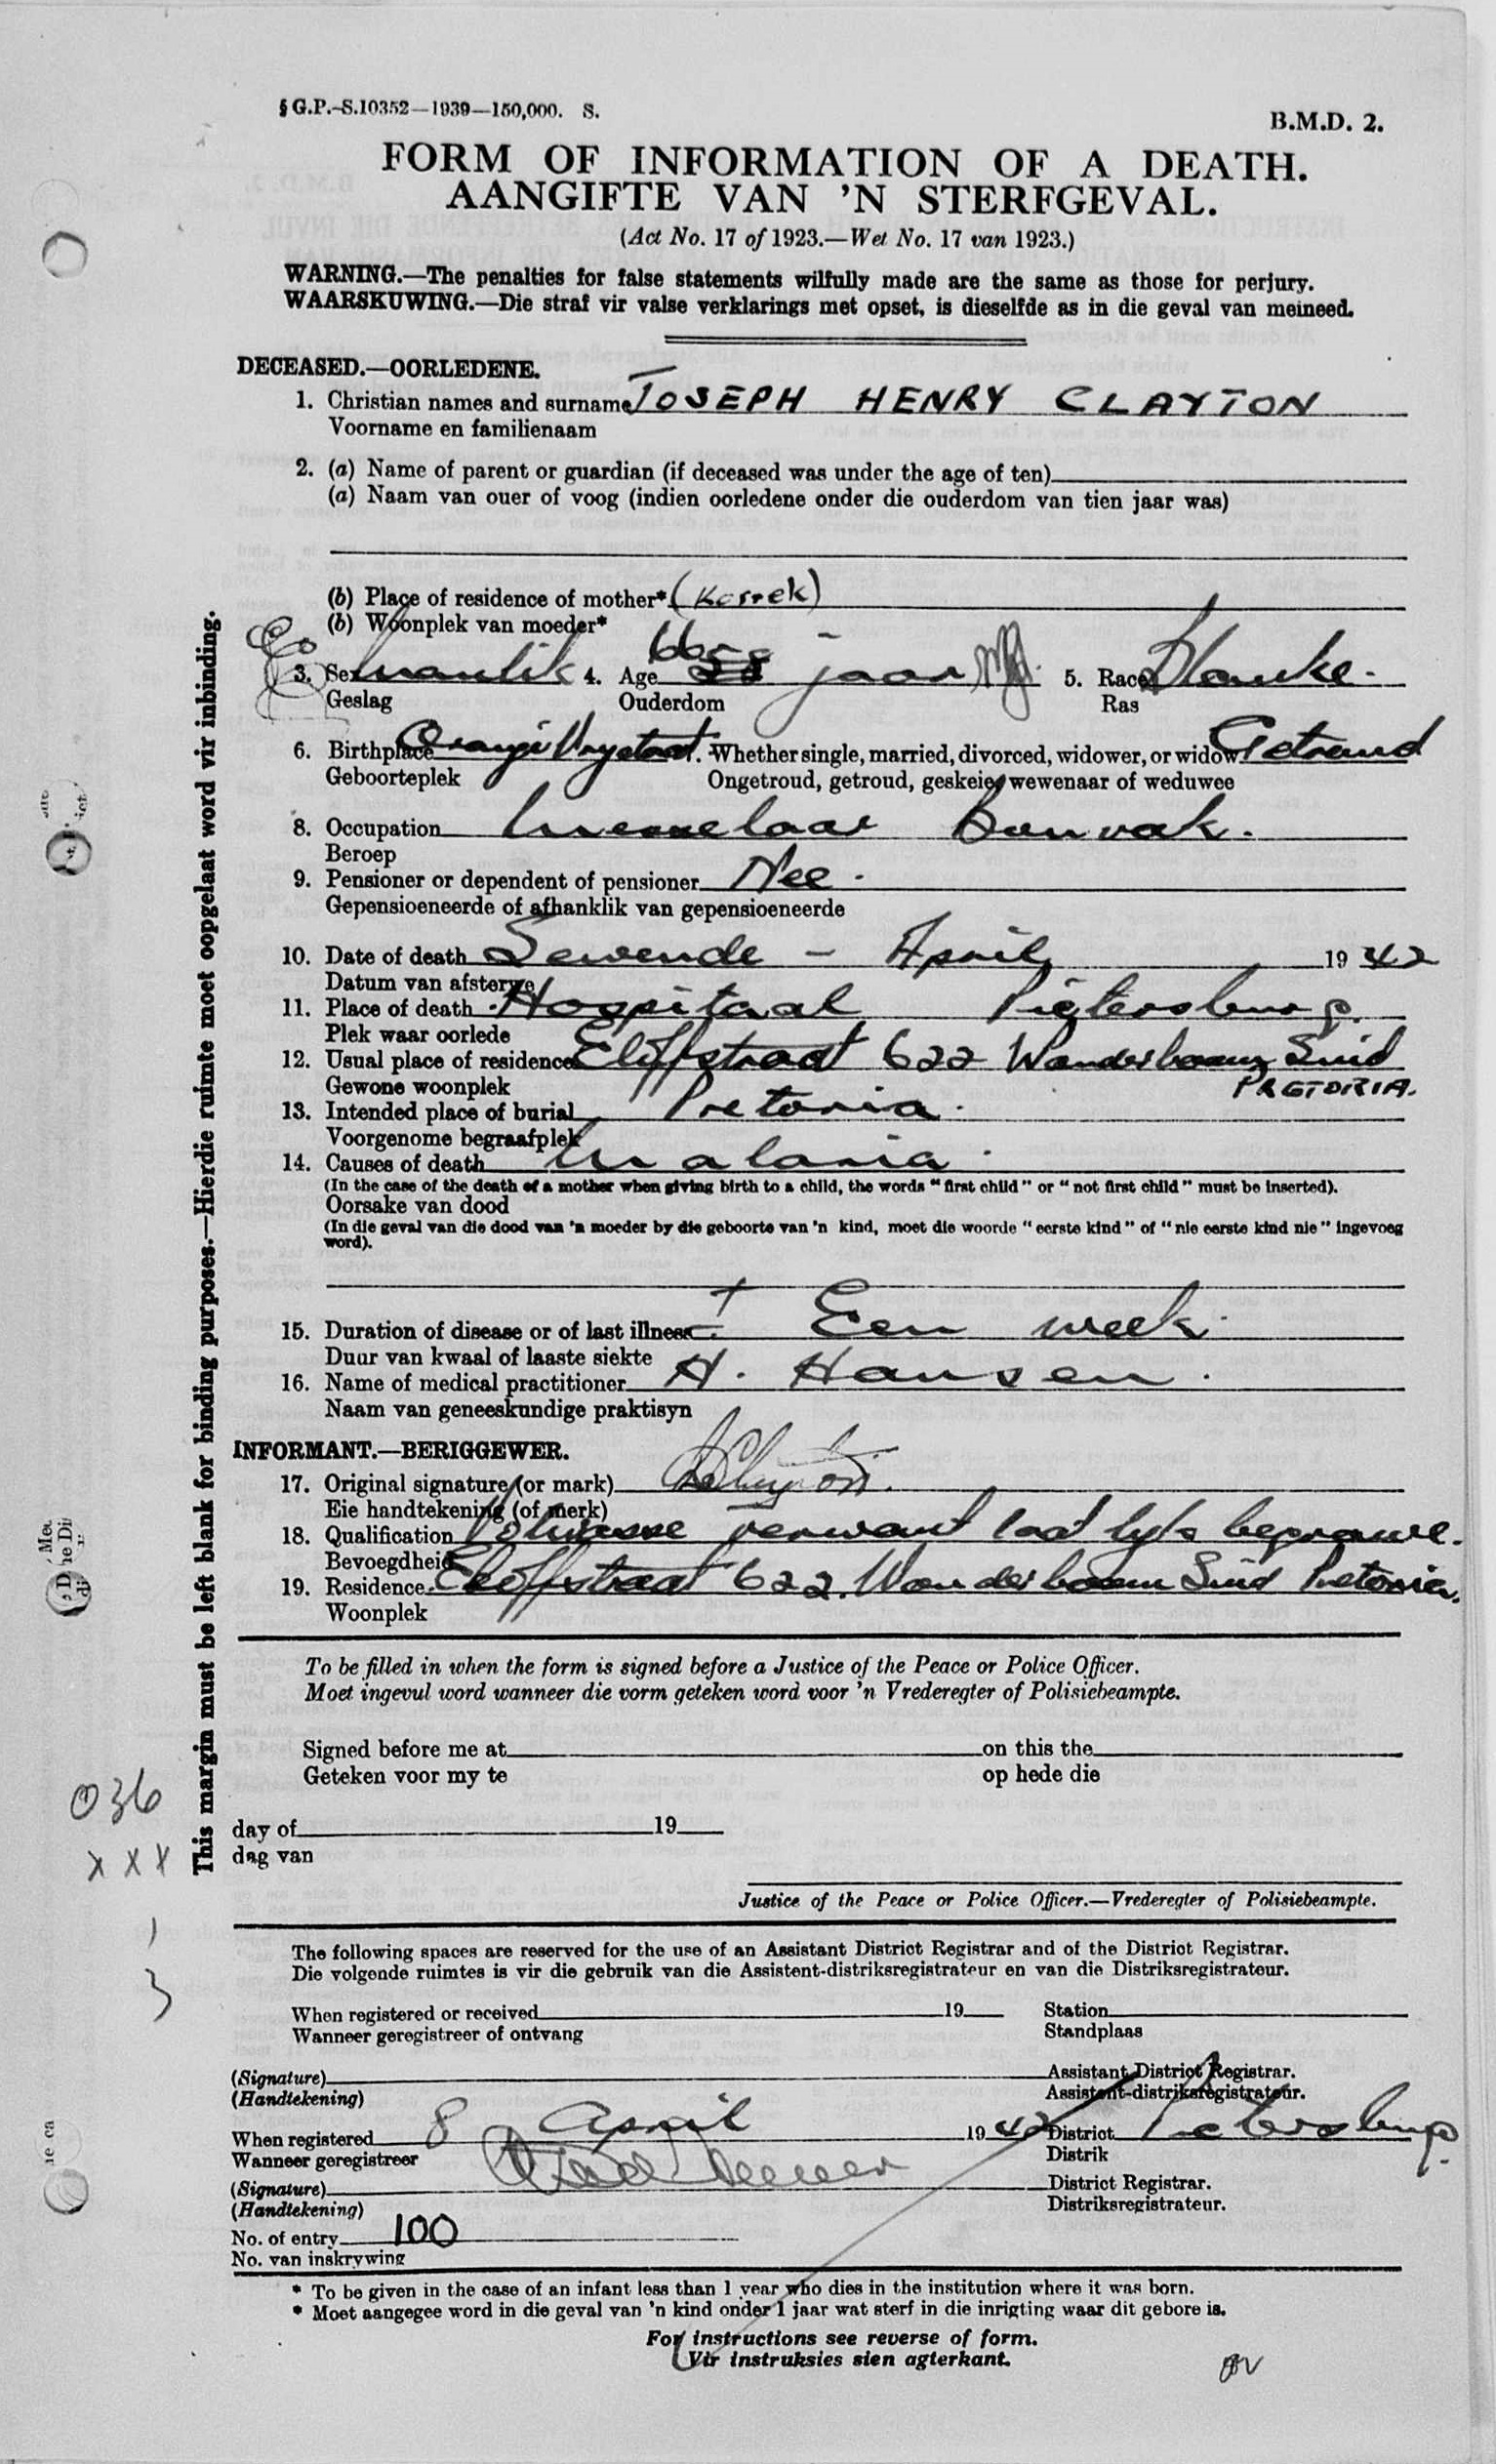 § G.P.-S.10352—1939—150,000. S.
B.M.D. 2.
FORM OF INFORMATION OF A DEATH.
AANGIFTE VAN 'N STERFGEVAL.
(Act No. 17 of 1923.—Wet No. 17 van 1923.)
WARNING.—The penalties for false statements wilfully made are the same as those for perjury.
WAARSKUWING.—Die straf vir valse verklarings met opset, is dieselfde as in die geval van meineed.
DECEASED.—OORLEDENE.
1. Christian names and surname JOSEPH HENRY CLAYTON
Voorname en familienaam
2. (a) Name of parent or guardian (if deceased was under the age of ten)
(a) Naam van ouer of voog (indien oorledene onder die ouderdom van tien jaar was)
(b) Place of residence of mother* (Korrek)
(b) Woonplek van moeder*
3. Sex manlik 4. Age 66 58 jaar 5. Race Blanke.
Geslag Ouderdom Ras
6. Birthplace Oranje Vrystaat. Whether single, married, divorced, widower, or widow Getroud
Geboorteplek Ongetroud, getroud, geskeie, wewenaar of weduwee
8. Occupation Messelaar Bouvak.
Beroep
9. Pensioner or dependent of pensioner Nee.
Gepensioeneerde of afhanklik van gepensioeneerde
10. Date of death Sewende - April 1942
Datum van afsterwe
11. Place of death Hospitaal Pietersburg.
Plek waar oorlede
12. Usual place of residence Eloffstraat 622 Wonderboom Suid
Gewone woonplek PRETORIA.
13. Intended place of burial Pretoria.
Voorgenome begraafplek
14. Causes of death Malaria.
(In the case of the death of a mother when giving birth to a child, the words "first child" or "not first child" must be inserted).
Oorsake van dood
(In die geval van die dood van 'n moeder by die geboorte van 'n kind, moet die woorde "eerste kind" of "nie eerste kind nie" ingevoeg
word).
15. Duration of disease or of last illness ± Een week.
Duur van kwaal of laaste siekte
16. Name of medical practitioner H. Hansen.
Naam van geneeskundige praktisyn
INFORMANT.—BERIGGEWER.
17. Original signature (or mark) Clayton.
Eie handtekening (of merk)
18. Qualification Volwasse verwant laat lyk begrawe.
Bevoegdheid
19. Residence Eloffstraat 622. Wonderboom Suid Pretoria.
Woonplek
To be filled in when the form is signed before a Justice of the Peace or Police Officer.
Moet ingevul word wanneer die vorm geteken word voor 'n Vrederegter of Polisiebeampte.
Signed before me at on this the
Geteken voor my te op hede die
day of 19
dag van
Justice of the Peace or Police Officer.—Vrederegter of Polisiebeampte.
The following spaces are reserved for the use of an Assistant District Registrar and of the District Registrar.
Die volgende ruimtes is vir die gebruik van die Assistent-distriksregistrateur en van die Distriksregistrateur.
When registered or received 19 Station
Wanneer geregistreer of ontvang Standplaas
(Signature) Assistant District Registrar.
(Handtekening) Assistent-distriksregistrateur.
When registered 8 April 1942 District Pietersburg.
Wanneer geregistreer Distrik
(Signature) District Registrar.
(Handtekening) Distriksregistrateur.
No. of entry 100
No. van inskrywing
* To be given in the case of an infant less than 1 year who dies in the institution where it was born.
* Moet aangegee word in die geval van 'n kind onder 1 jaar wat sterf in die inrigting waar dit gebore is.
For instructions see reverse of form.
Vir instruksies sien agterkant.
This margin must be left blank for binding purposes.—Hierdie ruimte moet oopgelaat word vir inbinding.
036
x x x
1
3